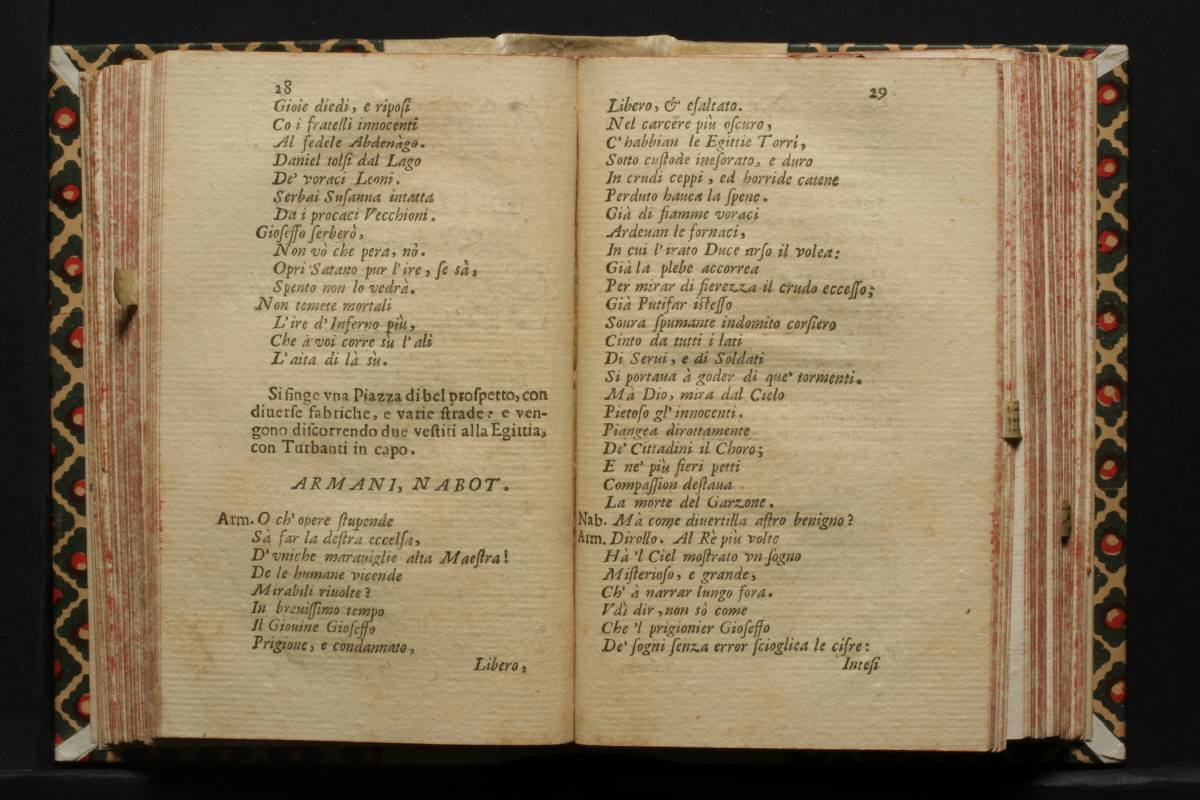 28
Gioie diedi, e riposi
Co i fratelli innocenti
Al fedele Abdenàgo.
Daniel tolsi dal Lago
De' voraci Leoni.
Serbai Susanna intatta
Da i procaci Vecchioni.
Gioseffo serberò,
Non vò che pera, nò.
Opri Satano pur l'ire, se sà,
Spento non lo vedrà.
Non temete mortali
L'ire d'Inferno più,
Che à voi corre sù l'ali
L'aita di là sù.
Si finge vna Piazza di bel prospetto, con
diuerse fabriche, e varie strade: e ven-
gono discorrendo due vestiti alla Egittia,
con Turbanti in capo.
ARMANI, NABOT.
Arm. O ch'opere stupende
Sà far la destra eccelsa,
D'vniche marauiglie alta Maestra!
De le humane vicende
Mirabili riuolte?
In breuissimo tempo
Il Giouine Gioseffo
Prigione, e condannato,
Libero,
29
Libero, & esaltato.
Nel carcere più oscuro,
C'habbian le Egittie Torri,
Sotto custode inesorato, e duro
In crudi ceppi, ed horride catene
Perduto hauea la spene.
Già di fiamme voraci
Ardeuan le fornaci,
In cui l'irato Duce arso il volea:
Già la plebe accorrea
Per mirar di fierezza il crudo eccesso;
Già Putifar istesso
Soura spumante indomito corsiero
Cinto da tutti i lati
Di Serui, e di Soldati
Si portaua à goder di que' tormenti.
Mà Dio, mira dal Cielo
Pietoso gl'innocenti.
Piangea dirottamente
De' Cittadini il Choro;
E ne' più fieri petti
Compassion destaua
La morte del Garzone.
Nab. Mà come diuertilla astro benigno?
Arm. Dirollo. Al Rè più volte
Hà 'l Ciel mostrato vn sogno
Misterioso, e grande,
Ch' à narrar lungo fora.
Vdì dir, non sò come
Che 'l prigionier Gioseffo
De' sogni senza error scioglica le cifre:
Intesi